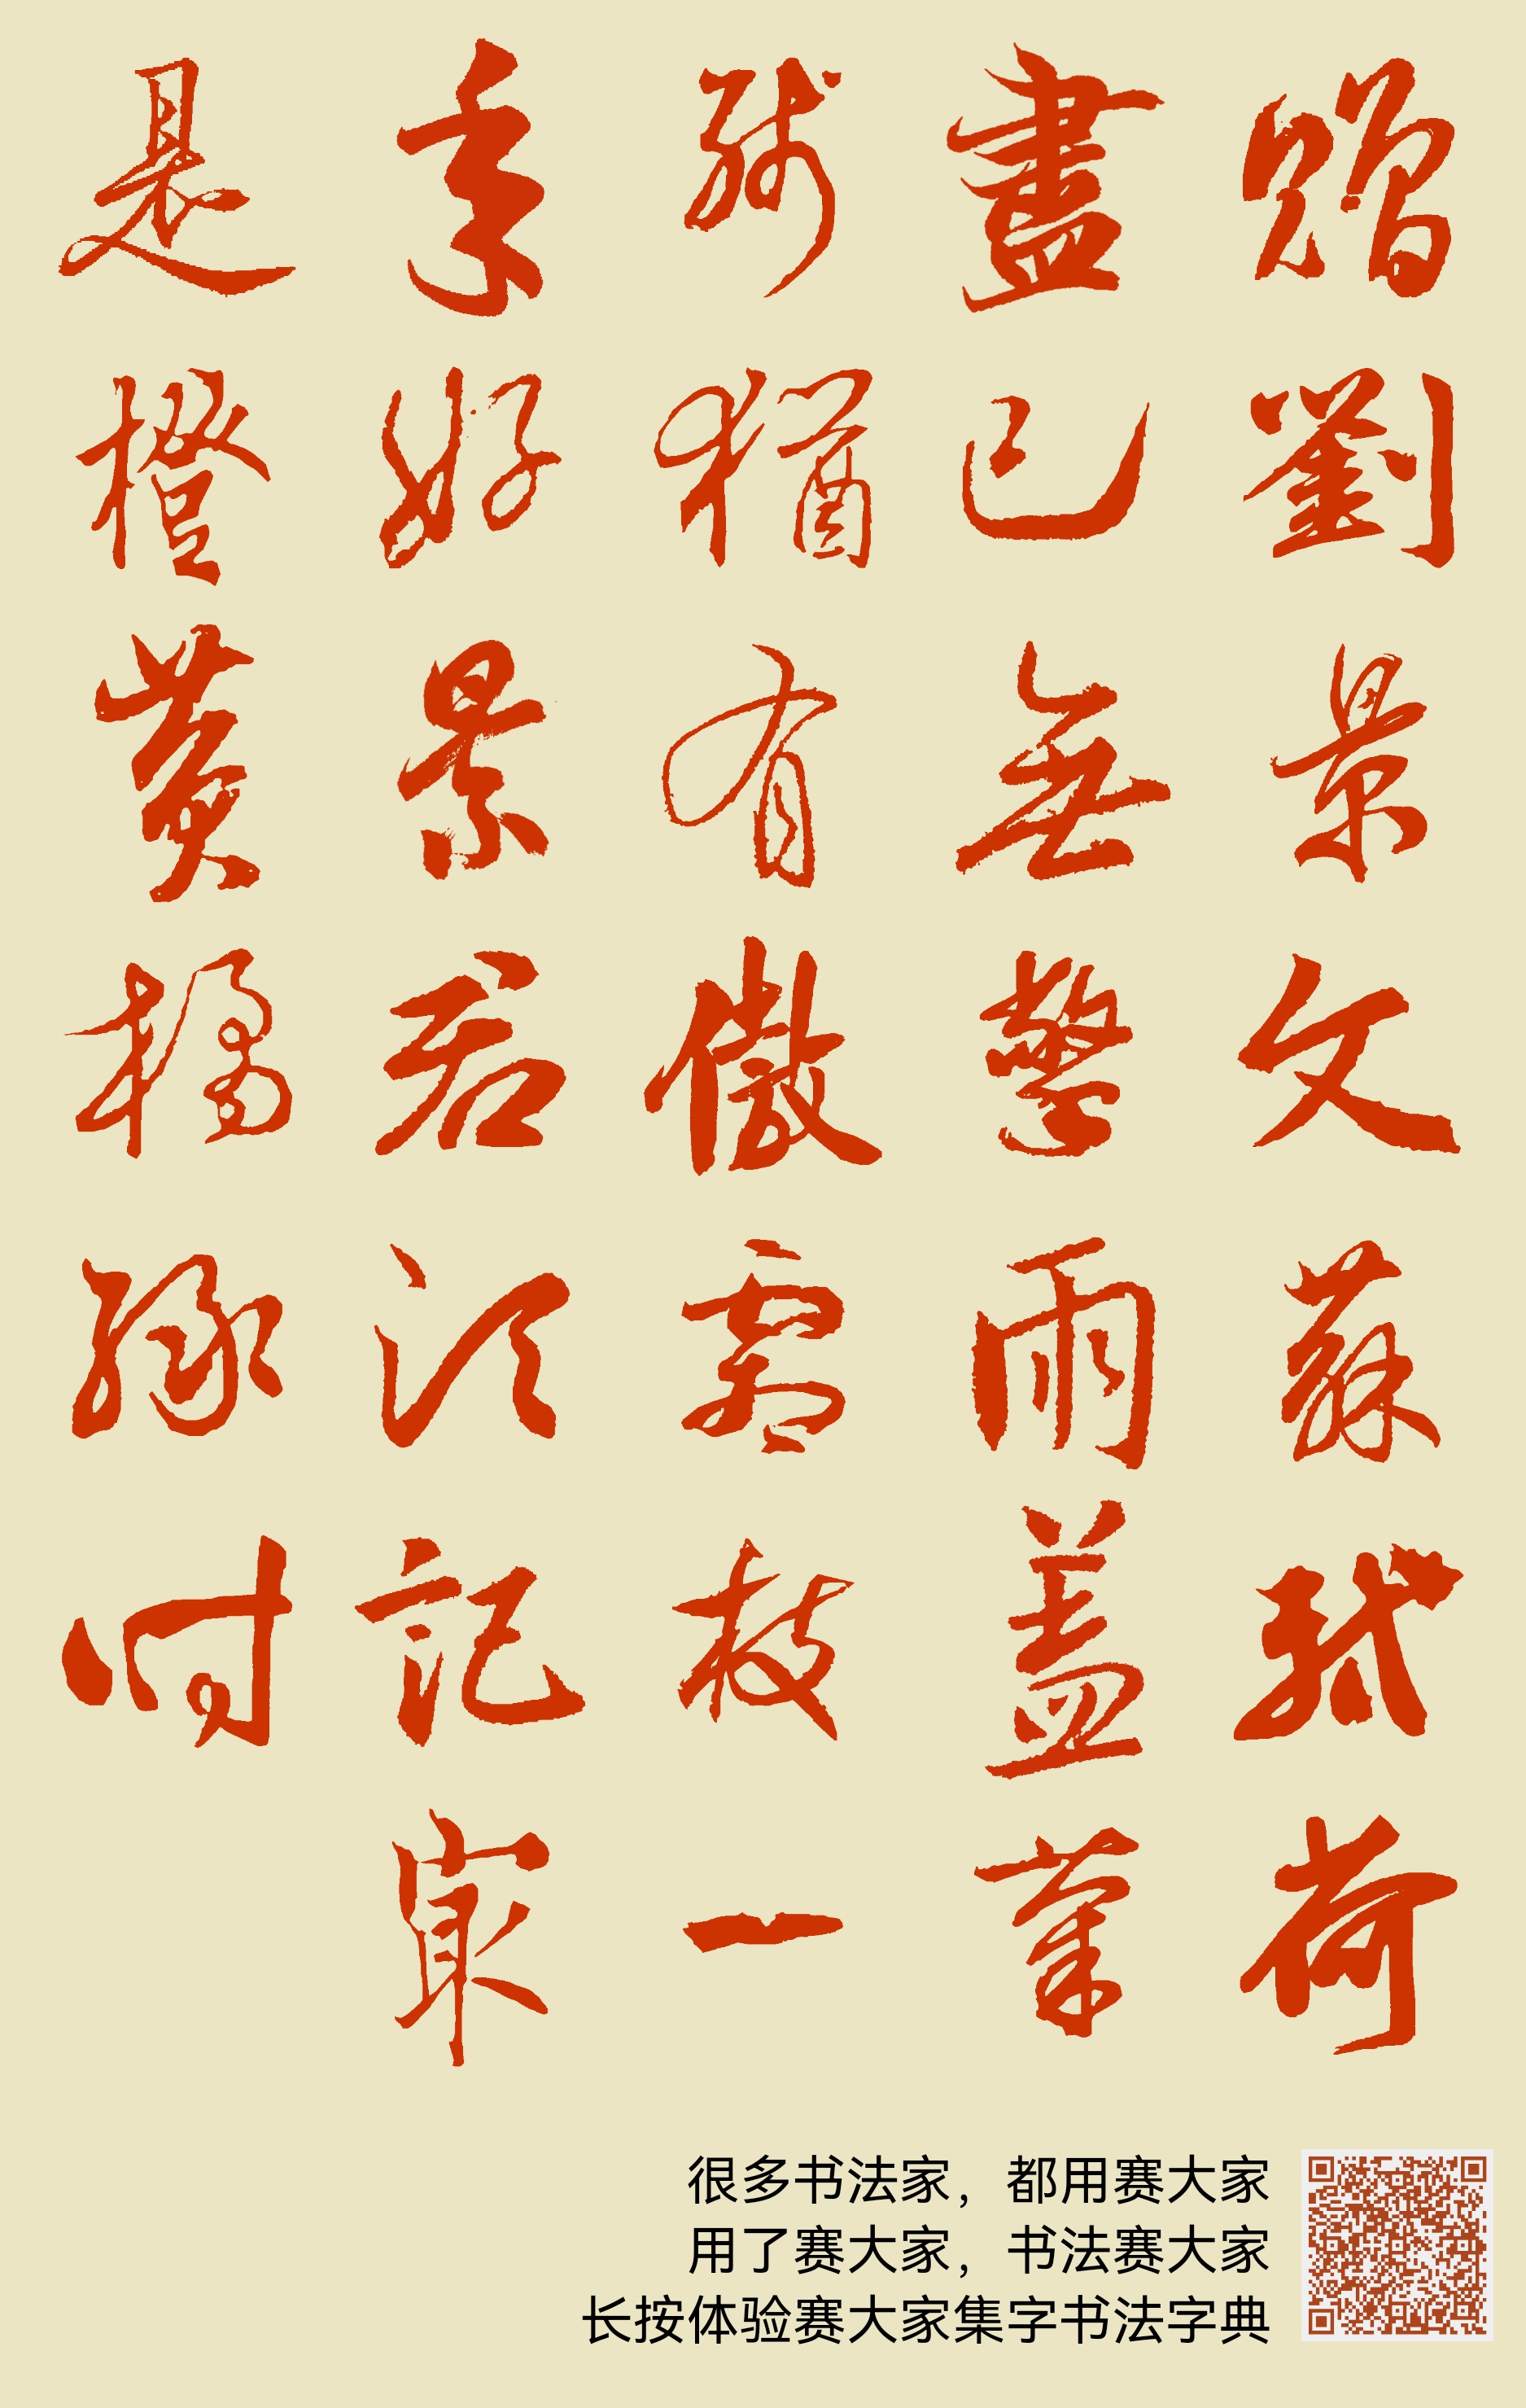 贈劉景文蘇軾荷
盡已無擎雨盖菊
殘猶有傲霜枝一
年好景君須記最
是橙黃橘綠時
很多书法家，都用赛大家
用了赛大家，书法赛大家
长按体验赛大家集字书法字典